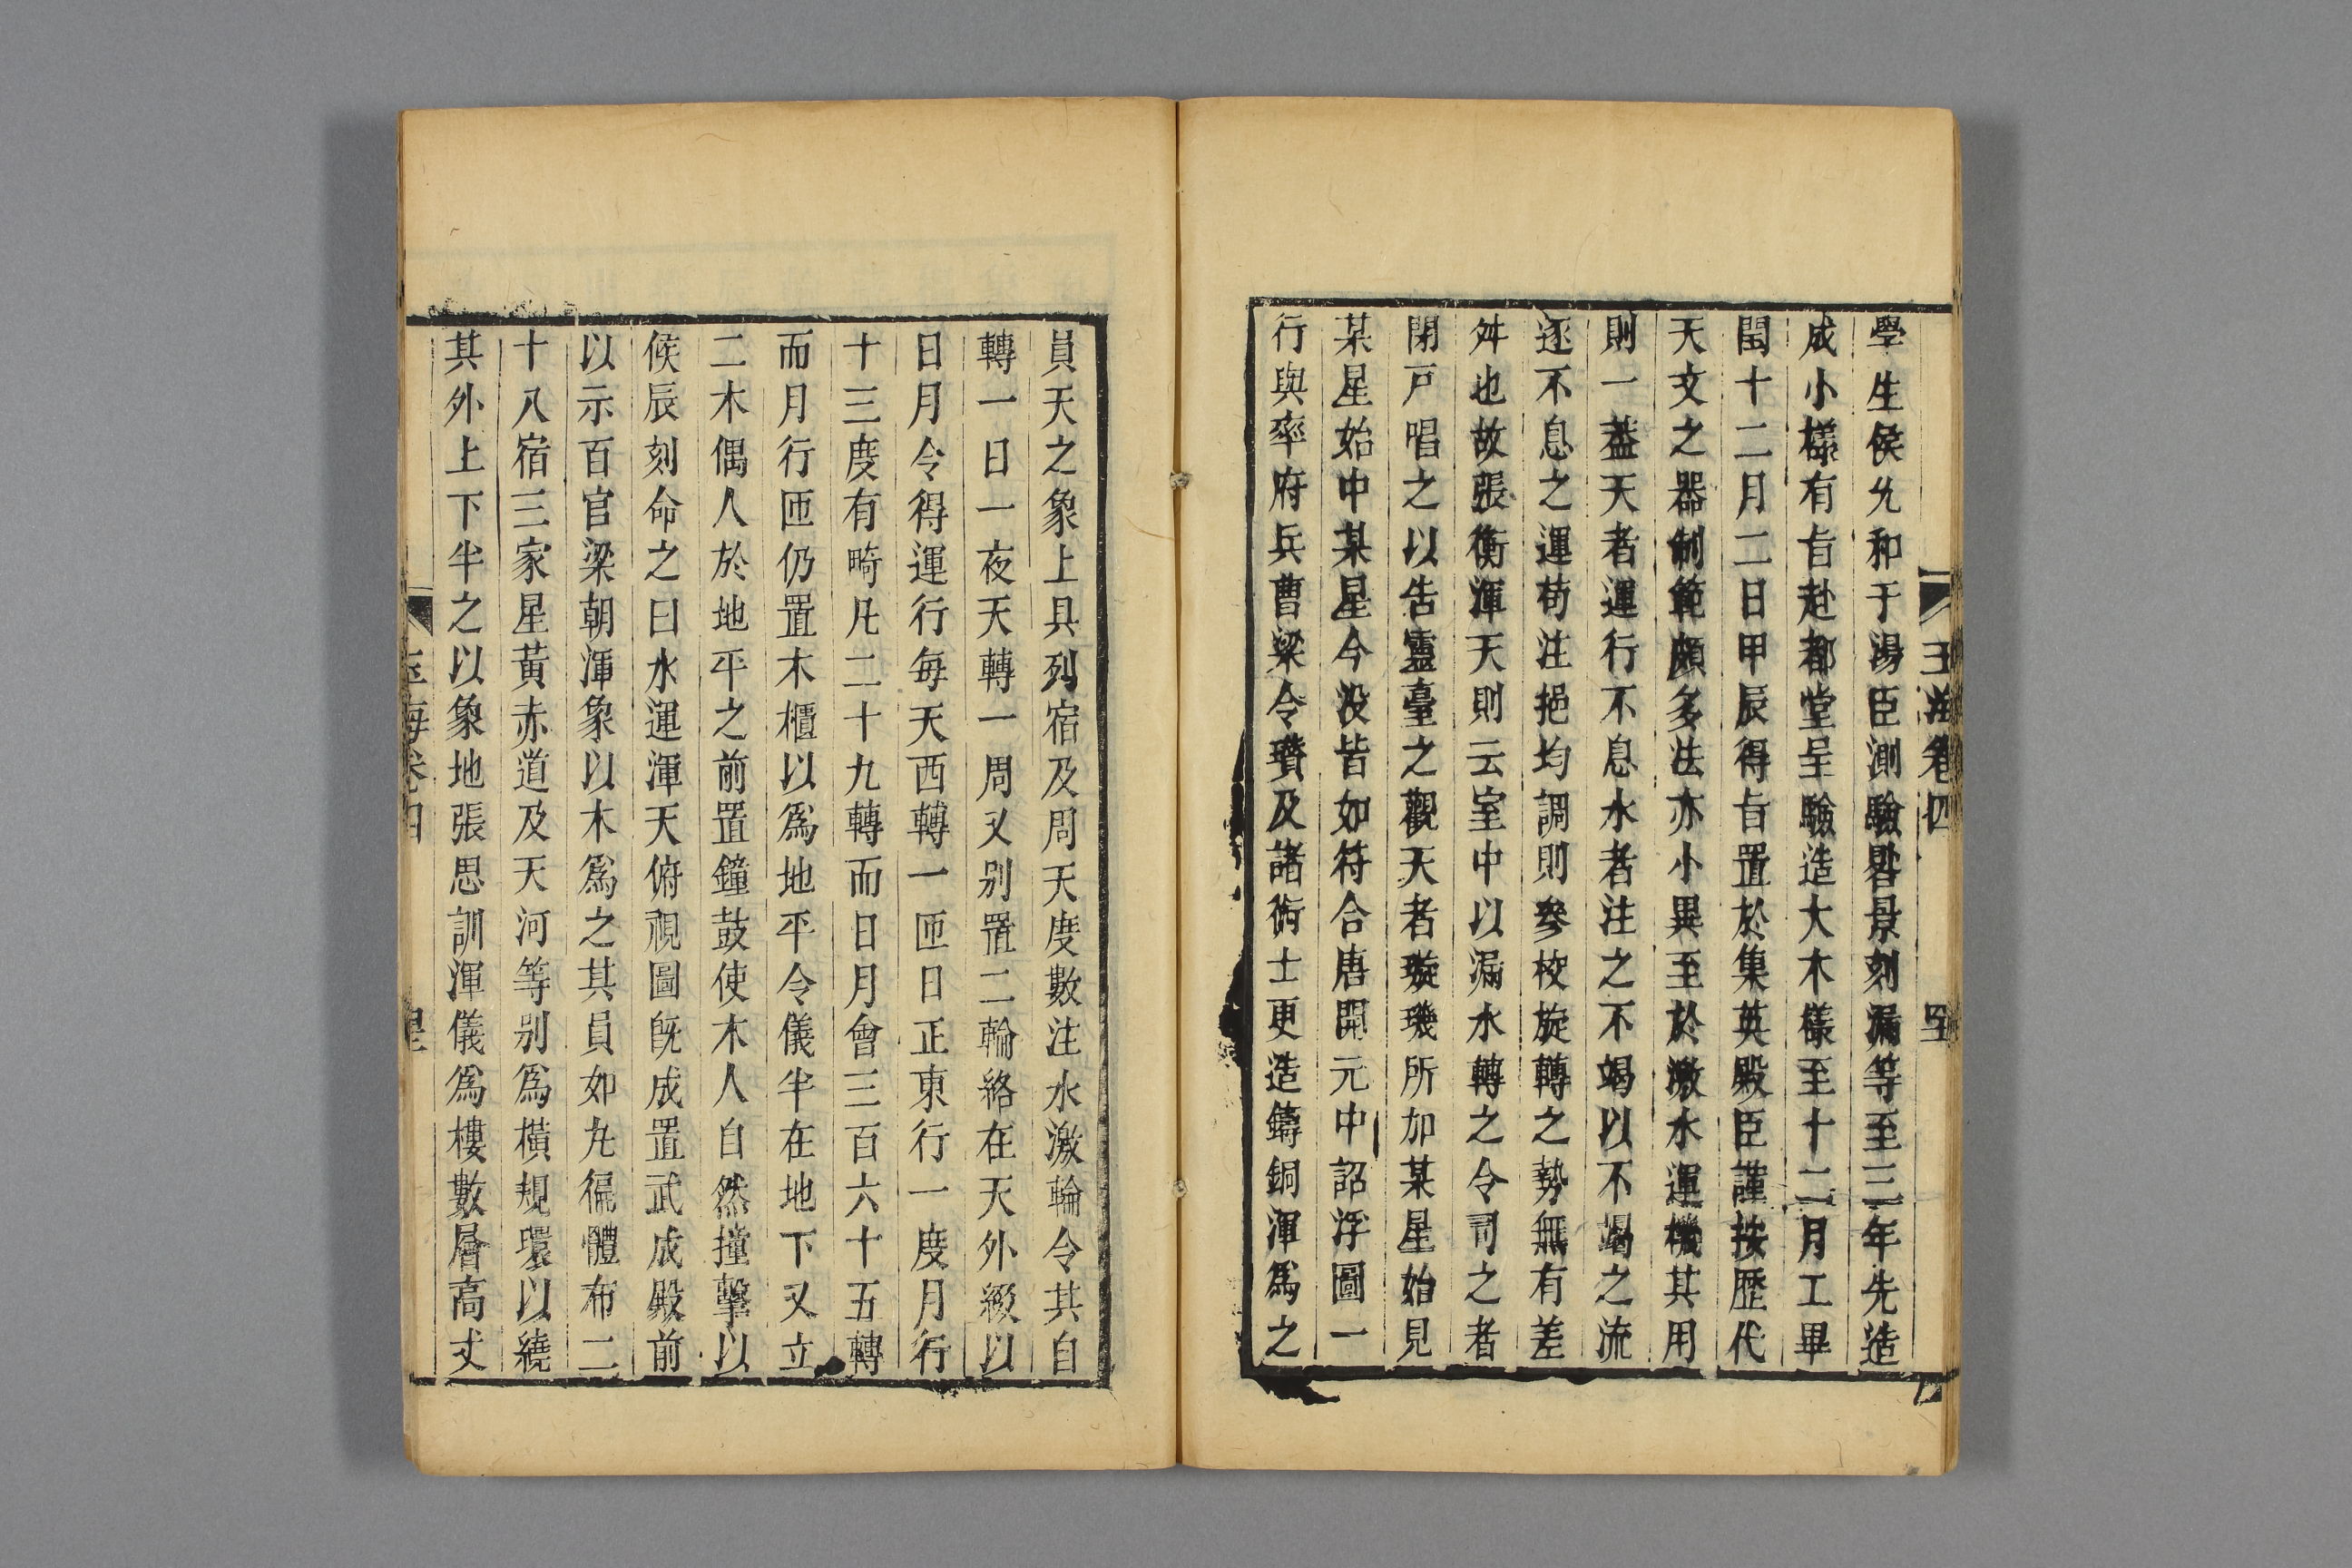 玉海卷四
學生侯允和于湯臣測驗晷景刻漏等至三年先造
成小樣有旨赴都堂呈驗造大木樣至十二月工畢
閏十二月二日甲辰得旨置於集英殿臣謹按歷代
天文之器制範頗多法亦小異至於激水運機其用
則一葢天者運行不息水者注之不竭以不竭之流
逐不息之運苟注挹均調則參校旋轉之勢無有差
舛也故張衡渾天則云室中以漏水轉之令司之者
閉戸唱之以告靈臺之觀天者璇璣所加某星始見
某星始中某星今没皆如符合唐開元中詔浮圖一
行與率府兵曹梁令瓚及諸術士更造鑄銅渾為之
員天之象上具列宿及周天度數注水激輪令其自
轉一日一夜天轉一周又别置二輪絡在天外綴以
日月令得運行每天西轉一匝日正東行一度月行
十三度有畸凡二十九轉而日月會三百六十五轉
而月行匝仍置木櫃以爲地平令儀半在地下又立
二木偶人於地平之前置鐘鼓使木人自然撞擊以
候辰刻命之曰水運渾天俯視圖旣成置武成殿前
以示百官梁朝渾象以木爲之其員如丸徧體布二
十八宿三家星黃赤道及天河等别爲橫規環以繞
其外上下半之以象地張思訓渾儀爲樓數層高丈
玉海卷四